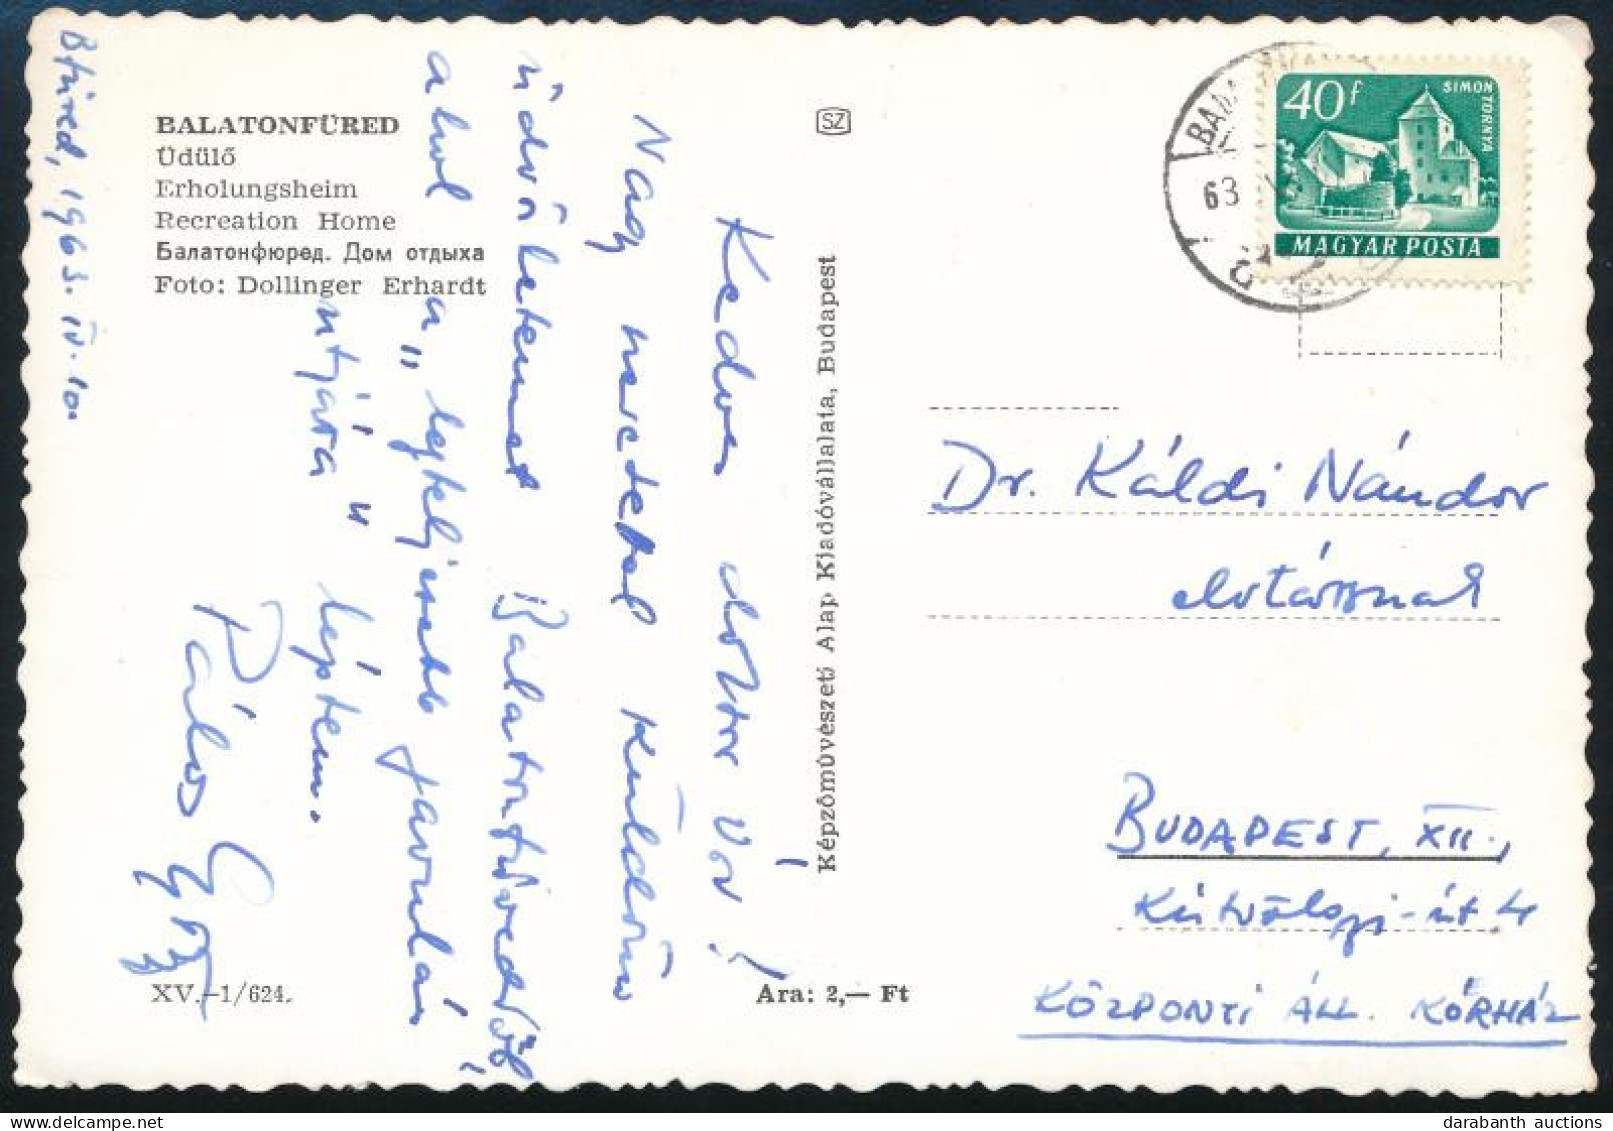 BALATONFÜRED
Üdülő
Erholungsheim
Recreation Home
Балатонфюред. Дом отдыха
Foto: Dollinger Erhardt
XV.—1/624.
Ara: 2,— Ft
Képzőművészeti Alap Kiadóvállalata, Budapest
SZ
40f
SIMON
TORNYA
MAGYAR POSTA
63
Bfüred, 1963. IV. 10.
Kedves doktor Úr!
Nagy szeretettel küldöm
üdvözletemet Balatonfüredről,
ahol a „legteljesebb javulás
útjára" léptem.
Pálos
Dr. Káldi Nándor
elvtársnak
BUDAPEST, XII.,
Kútvölgyi-út 4
KÖZPONTI ÁLL. KÓRHÁZ
darabanth auctions